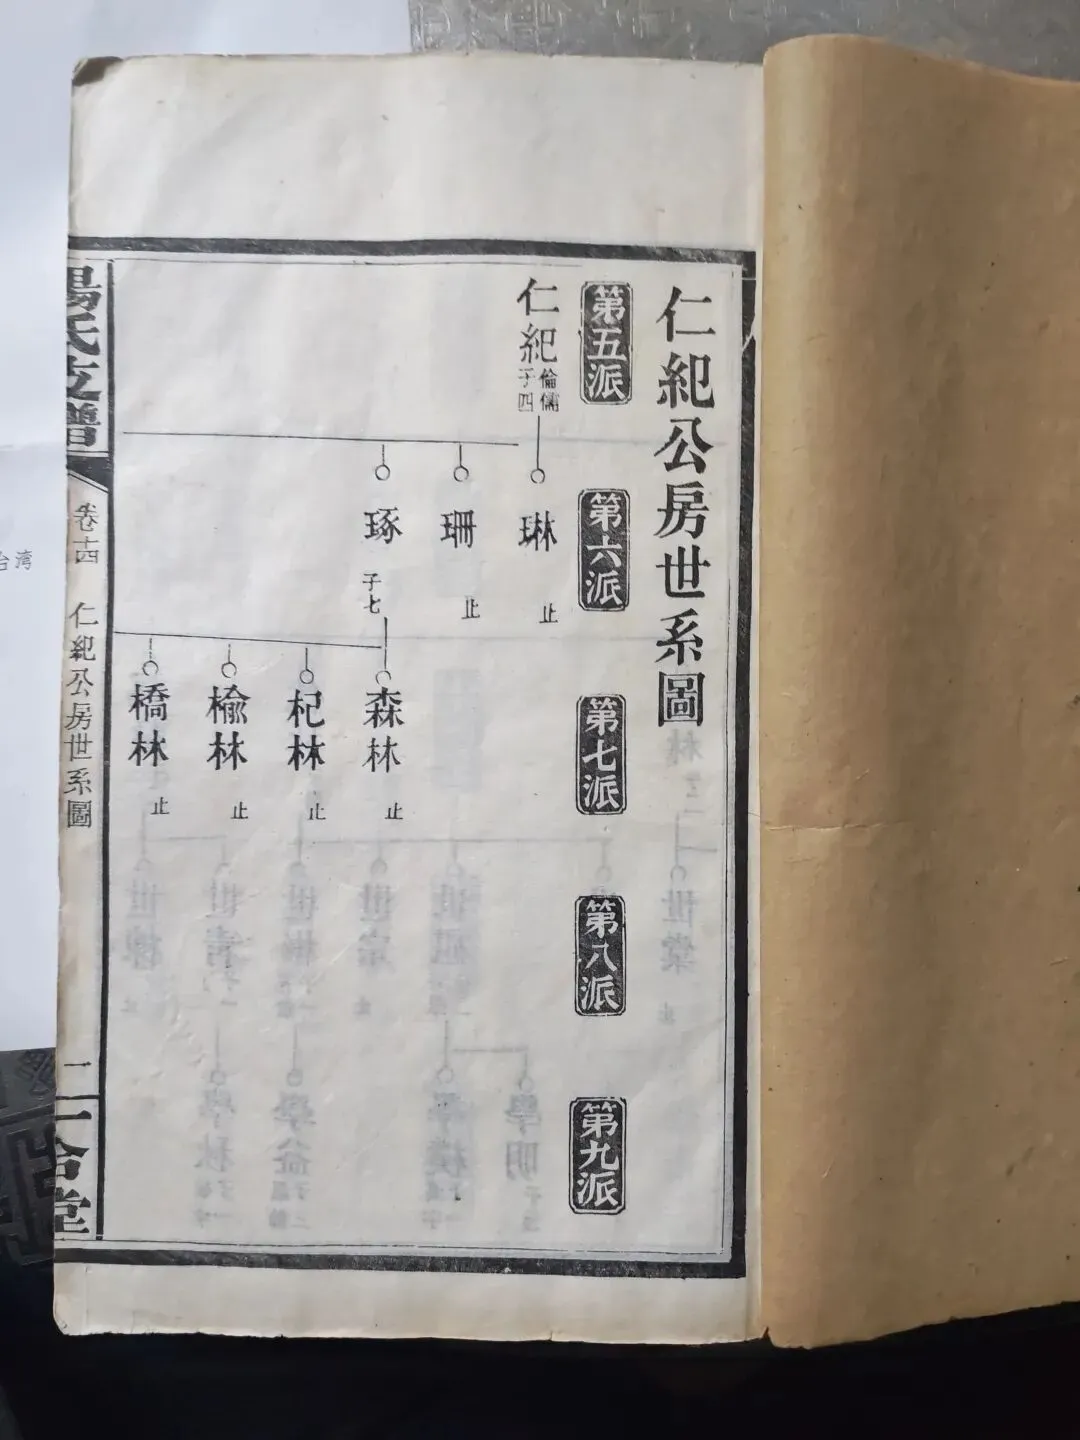 仁紀公房世系圖
第五派
第六派
第七派
第八派
第九派
仁紀
倫儒
子四
琳
止
珊
止
琢
子七
森林
止
杞林
止
榆林
止
橋林
止
楊氏支譜
卷十四
仁紀公房世系圖
一
一合堂
台湾